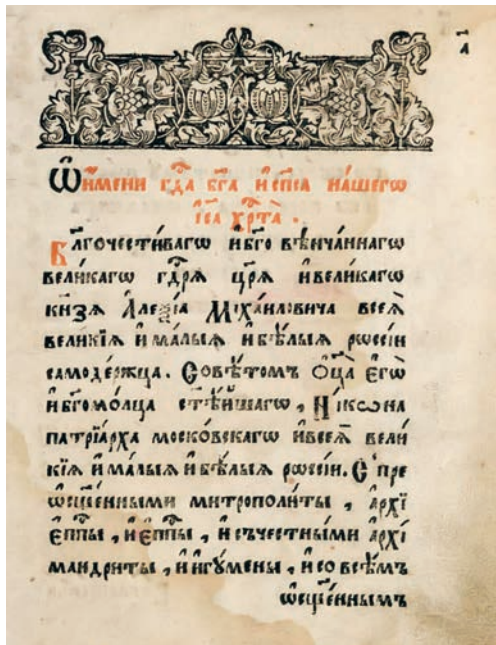 а҃
Ѡ҆ и҆мени гд҇а бг҃а и҆ сп҃са на́шегѡ
і҆с҃а хр҇та̀ .
Бл҃гочести́вагѡ и҆ бг҃о вѣ́нча́ннагѡ
вели́кагѡ гд҇рѧ̀ цр҃ѧ̀ и҆ вели́кагѡ
кн҃зѧ А҆ле́ѯі́а Мїха́иловича всеѧ̀
вели́кїѧ и҆ ма́лыѧ и҆ бѣ́лыѧ рѡссі́и
самоде́ржца . Совѣ́томъ ѻ҆ц҃а̀ є҆гѡ̀
и҆ бг҃омо́лца ст҃ѣ́йшагѡ , Ни́кѡна
патрїа́рха моско́вскагѡ и҆ всеѧ̀ вели́
кїѧ и҆ ма́лыѧ и҆ бѣ́лыѧ рѡссі́и . С̾ пре
ѡ҆сщ҃е́нными митрополи́ты , а҆рхї
є҆пп҇ы , и҆ є҆пп҇ы , и҆ съчестны́ми а҆рхї
мандри́ты , и҆ и҆гꙋ́мены , и҆ со всѣ́мъ
ѡ҆сщ҃е́ннымъ